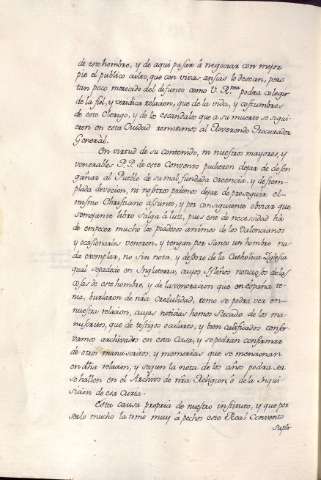 de este hombre, y de aqui pasar à negociar con mejor
pie el publico culto, que con vivas ansias le desean, pero
tan poco merecido del difunto como V. R.ma podrà colegir
de la fiel, y veridica relacion, que de la vida, y costumbres
de este Clerigo, y de los escandalos que a su muerte se sigui-
eron en esta Ciudad remitimos al Reverendo Procurador
General.
En virtud de su contenido, ni nuestros mayores, y
venerables P.P. de este Convento pudieron dexar de desen-
gañar al Pueblo de su mal fundada creencia, y destem-
plada devocion, ni nosotros podemos dexar de proseguir el
mismo Christiano assunto, y por consiguiente obviar que
semejante libro salga à luz, pues este de necesidad hà
de empecer mucho los piadosos animos de los Valencianos
y ocasionarles veneren, y tengan por Santo un hombre na-
da exemplar, no sin nota, y dentro de la Catholica Iglesia
qual sucediò en Inglaterra, cuyos Isleños noticiosos de las
cosas de este hombre, y de la veneracion que en España te-
nia, burlaron de n.ra credulidad, como se podrà ver en
nuestra relacion, cuyas noticias hemos sacado de los ma-
nuscritos, que de testigos oculares, y bien calificados conser-
vamos archivados en esta Casa, y se podràn confirmar
de otros manuscritos, y memorias que se mencionan
en d.ha relacion, y segun la nota de los años podrà ser
se hallen en el Archivo de n.ra Religion, ò de la Inqui-
sicion de esa Curia.
Esta causa propria de nuestro instituto, y que por
serlo mucho la tomò muy à pechos este Real Convento
Suplo